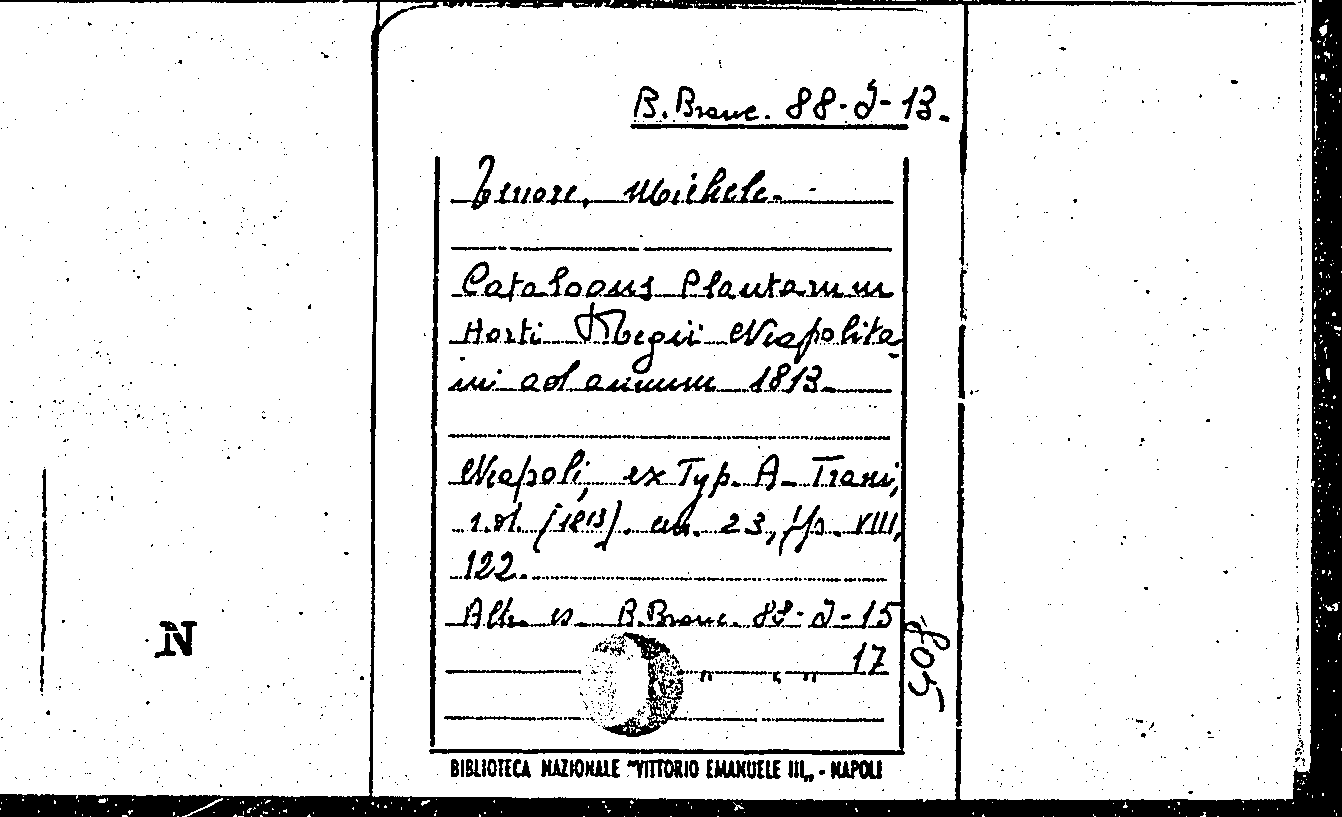 B. Branc. 88-J-13.
Tenore, Michele.
Catalogus Plantarum
Horti Regii Neapolita-
ni ad annum 1813.
Neapoli, ex Typ. A. Trani,
s.d. [1813]. cm. 23, pp. VIII,
122.
Altr. es. B. Branc. 88-J-15
" " " 17
N
BIBLIOTECA NAZIONALE "VITTORIO EMANUELE III„ - NAPOLI